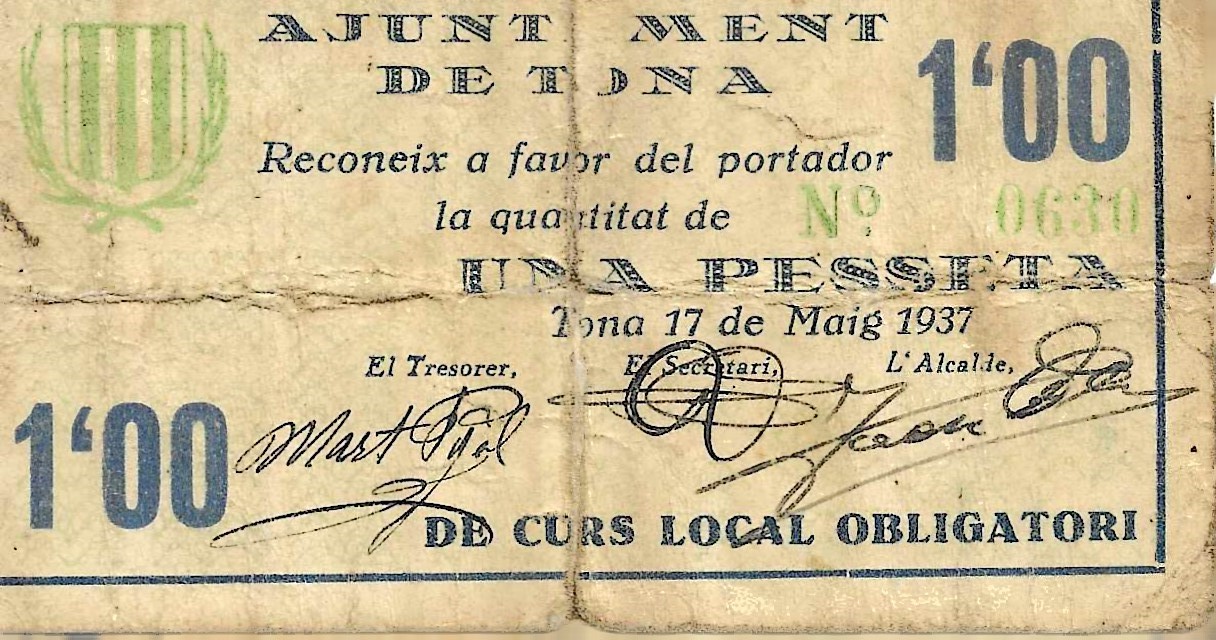 AJUNTAMENT
DE TONA
1'00
Reconeix a favor del portador
la quantitat de
Nº 0630
UNA PESSETA
Tona 17 de Maig 1937
El Tresorer, El Secretari, L'Alcalde,
1'00
DE CURS LOCAL OBLIGATORI